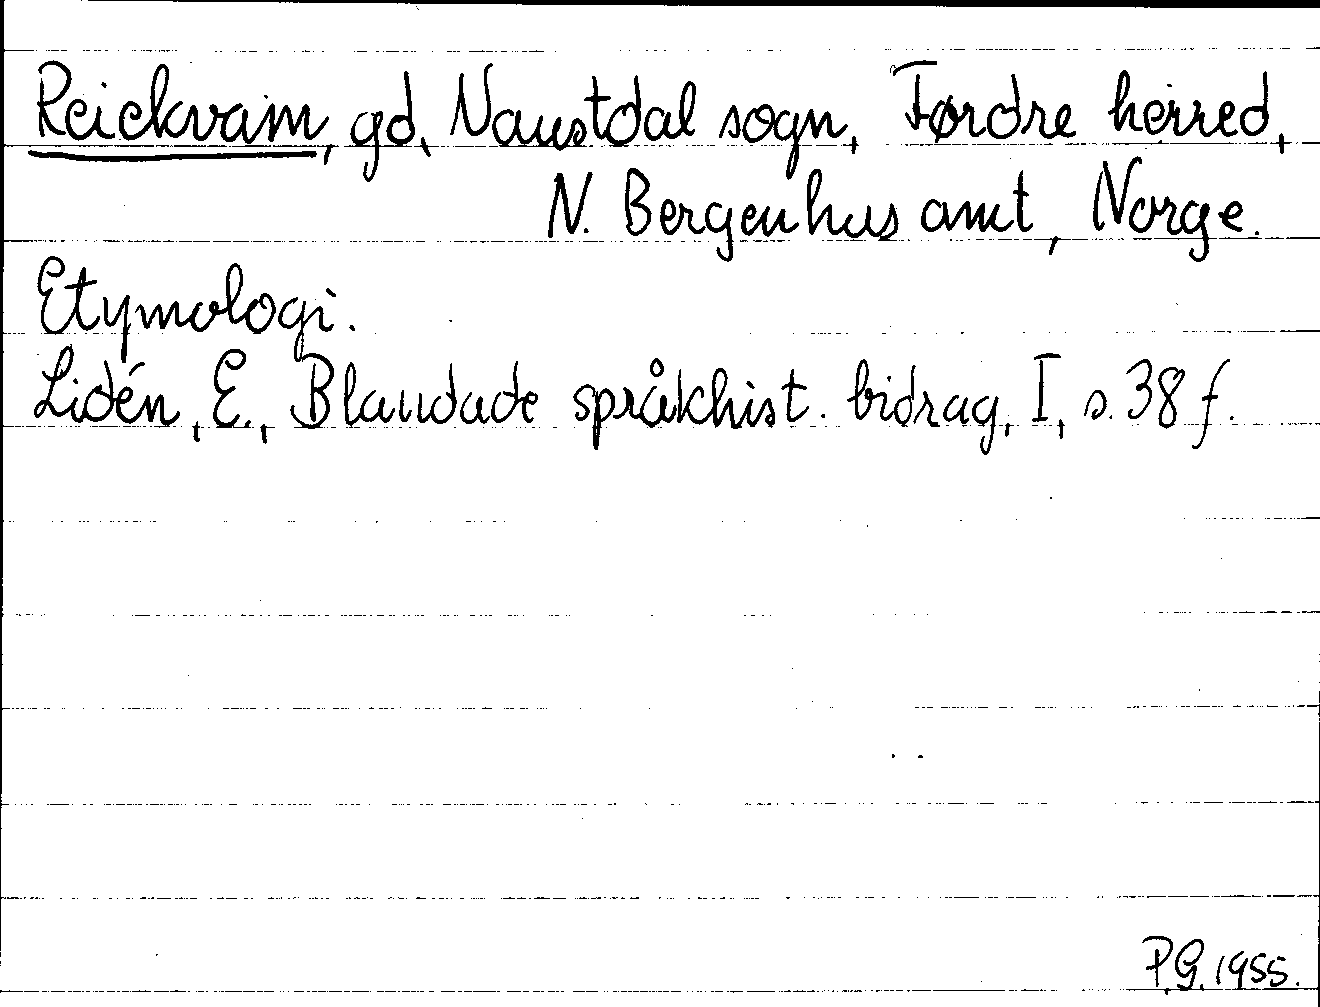 Reickvam, gd, Naustdal sogn, Førdre herred,
N. Bergenhus amt, Norge.
Etymologi.
Lidén, E., Blandade språkhist. bidrag, I, s. 38 f.
P.G. 1955.